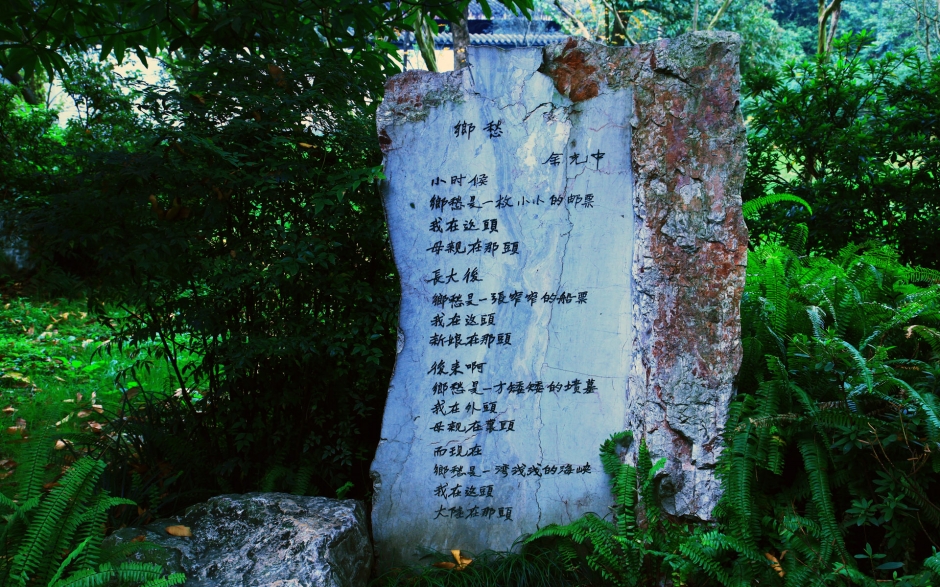 鄉愁
余光中
小时候
鄉愁是一枚小小的邮票
我在这頭
母親在那頭
長大後
鄉愁是一張窄窄的船票
我在这頭
新娘在那頭
後来啊
鄉愁是一方矮矮的墳墓
我在外頭
母親在裏頭
而現在
鄉愁是一湾浅浅的海峡
我在这頭
大陸在那頭